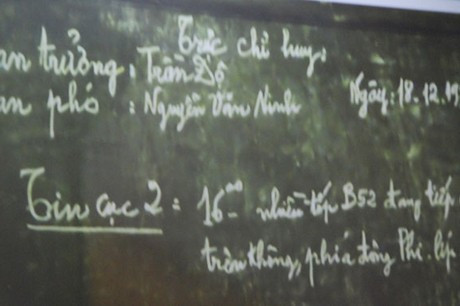 Trực chỉ huy:
an trưởng: Trần Độ
an phó : Nguyễn Văn Ninh Ngày: 18.12.19
Tin cục 2 = 16ʰ⁰⁰ nhiều tốp B52 đang tiếp
trên không, phía đông Phi-líp